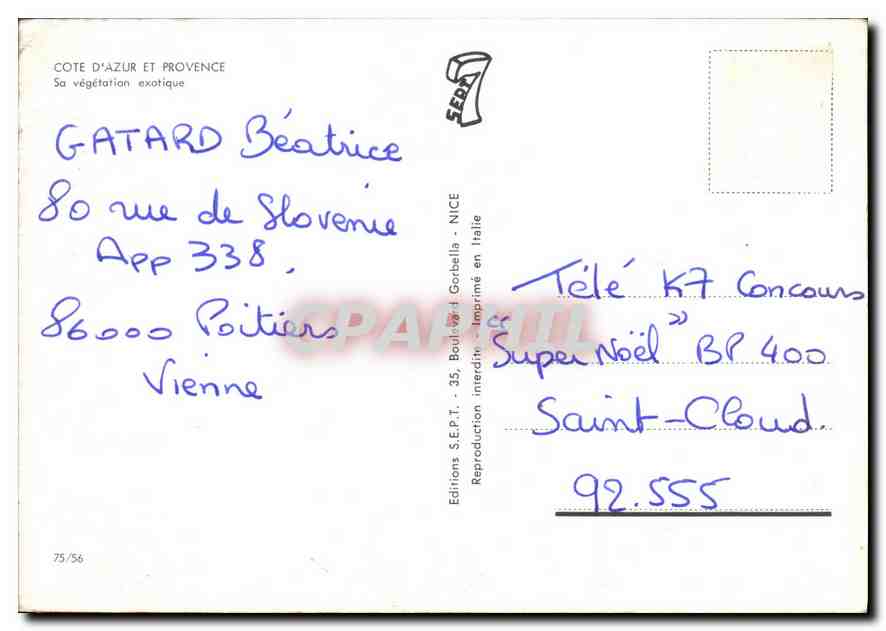 COTE D'AZUR ET PROVENCE
Sa végétation exotique
SEPT 7
GATARD Béatrice
80 rue de Slovenie
App 338.
86000 Poitiers
Vienne
75/56
Editions S.E.P.T. - 35, Boulevard Gorbella - NICE
Reproduction interdite - Imprimé en Italie
CPAPHIL
Télé K7 Concours
"Super Noël" BP 400
Saint-Cloud.
92.555